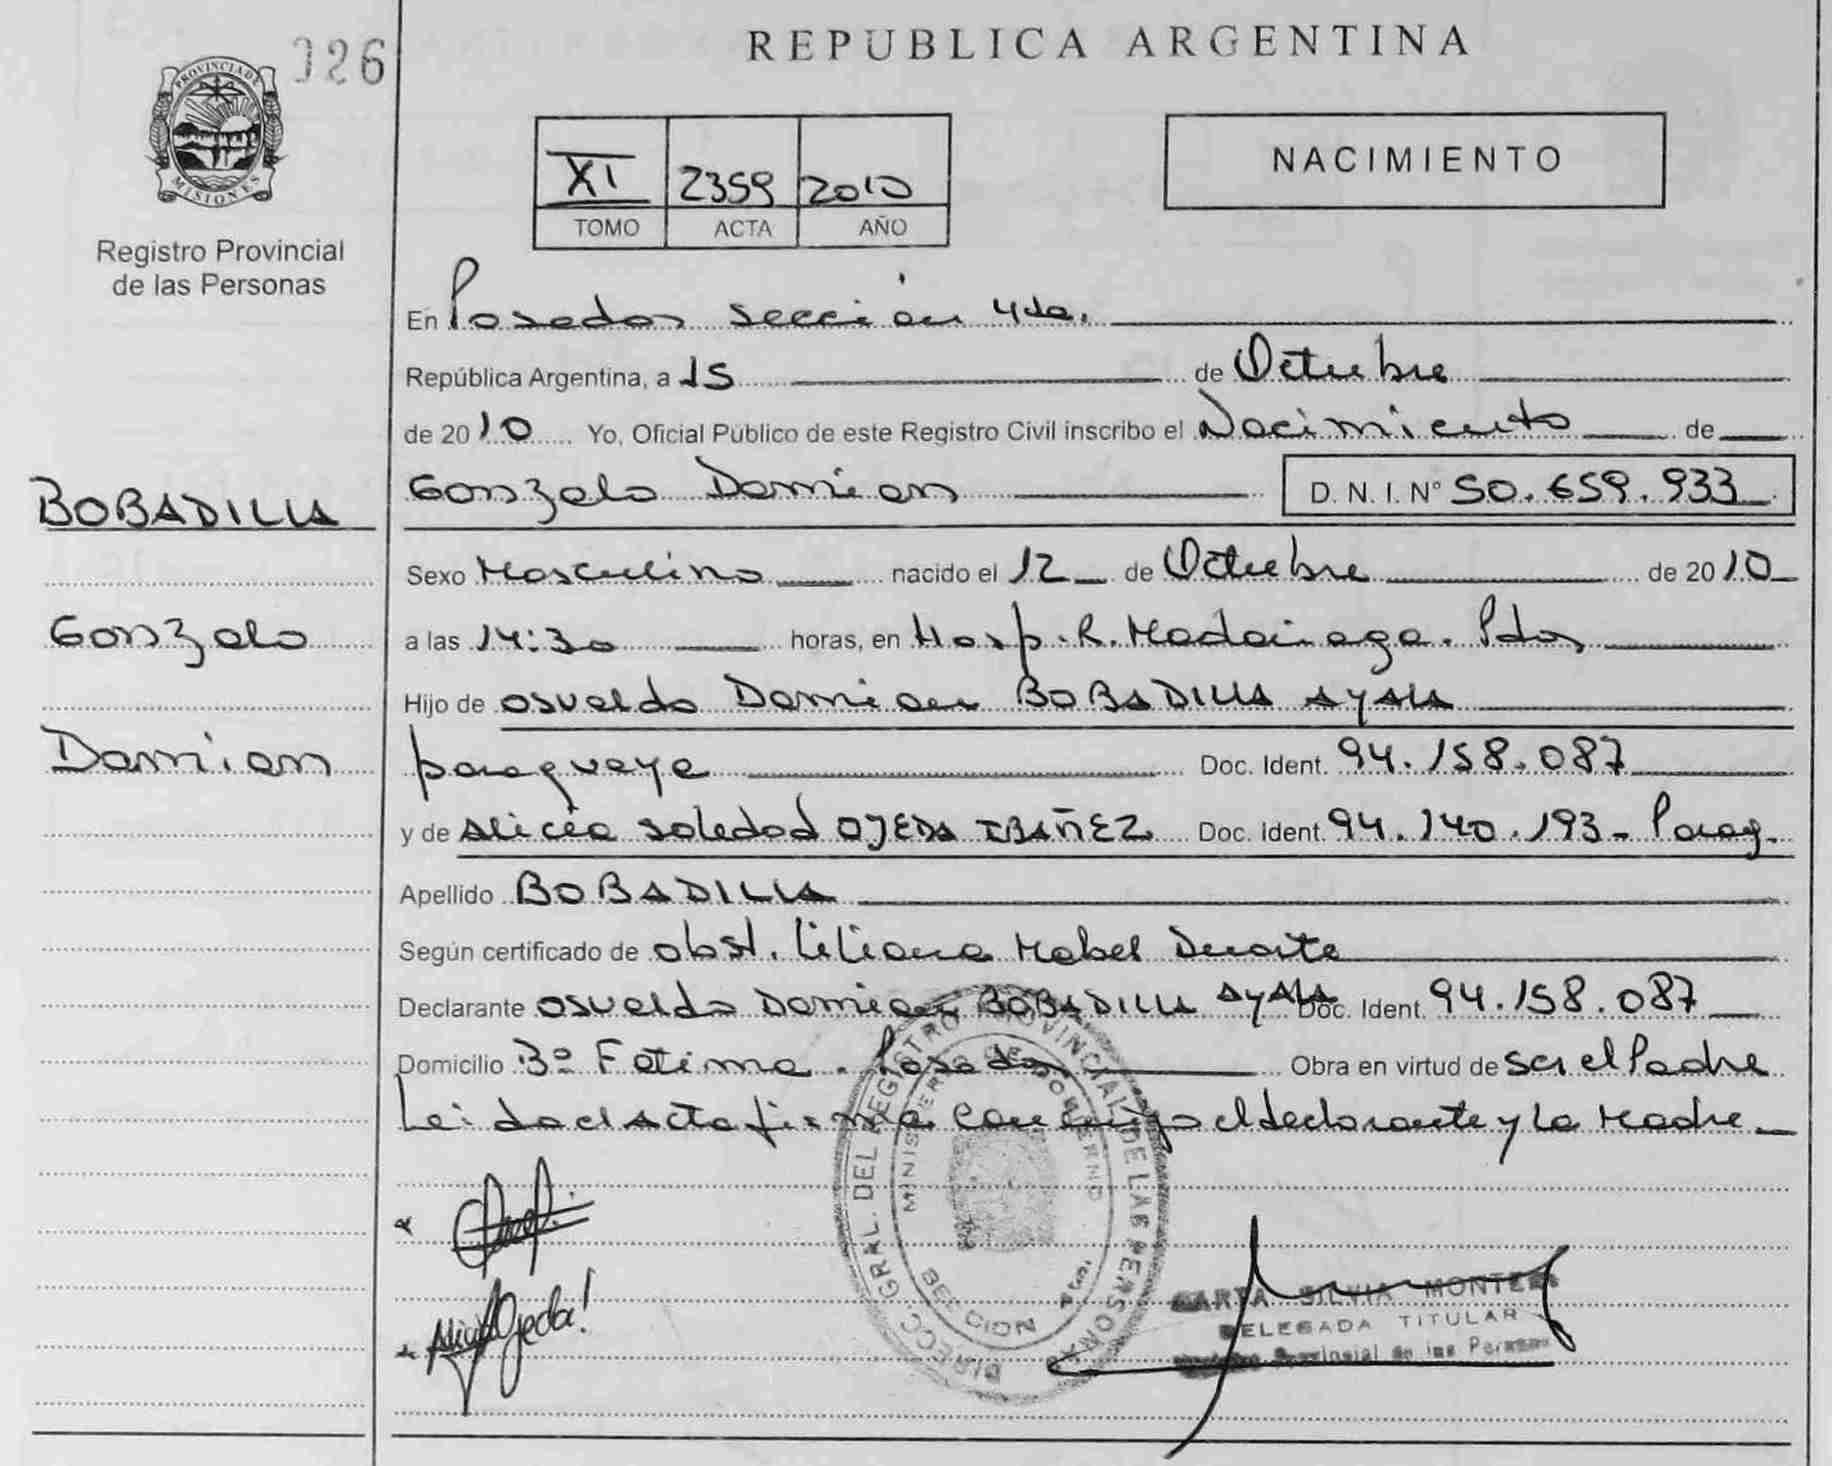 026
REPUBLICA ARGENTINA
PROVINCIA DE
MISIONES
Registro Provincial
de las Personas
XI 2359 2010
TOMO ACTA AÑO
NACIMIENTO
En Posadas sección 4ta.
República Argentina, a 15 de Octubre
de 2010 Yo, Oficial Publico de este Registro Civil inscribo el Nacimiento de
BOBADILLA
Gonzalo Damian D.N.I. N° 50.659.933
Sexo Masculino nacido el 12 de Octubre de 2010
Gonzalo
a las 14:30 horas, en Hosp. R. Madariaga. Pdas
Hijo de Osvaldo Damian BOBADILLA AYALA
Damian
paraguaya Doc. Ident. 94.158.087
y de Alicia Soledad OJEDA IBAÑEZ Doc. Ident. 94.140.193- Parag.
Apellido BOBADILLA
Según certificado de obst. Liliana Mabel Duarte
Declarante Osvaldo Damian BOBADILLA AYALA Doc. Ident. 94.158.087
Domicilio B° Fatima. Posadas Obra en virtud de ser el Padre
Leida el Acta firma conmigo el declarante y la Madre
DIRECC. GRAL. DEL REGISTRO PROVINCIAL DE LAS PERSONAS
MINISTERIO DE GOBIERNO
SECCION 4ta.
Ojeda!
SILVIA MONTERO
DELEGADA TITULAR
Provincial de las Personas